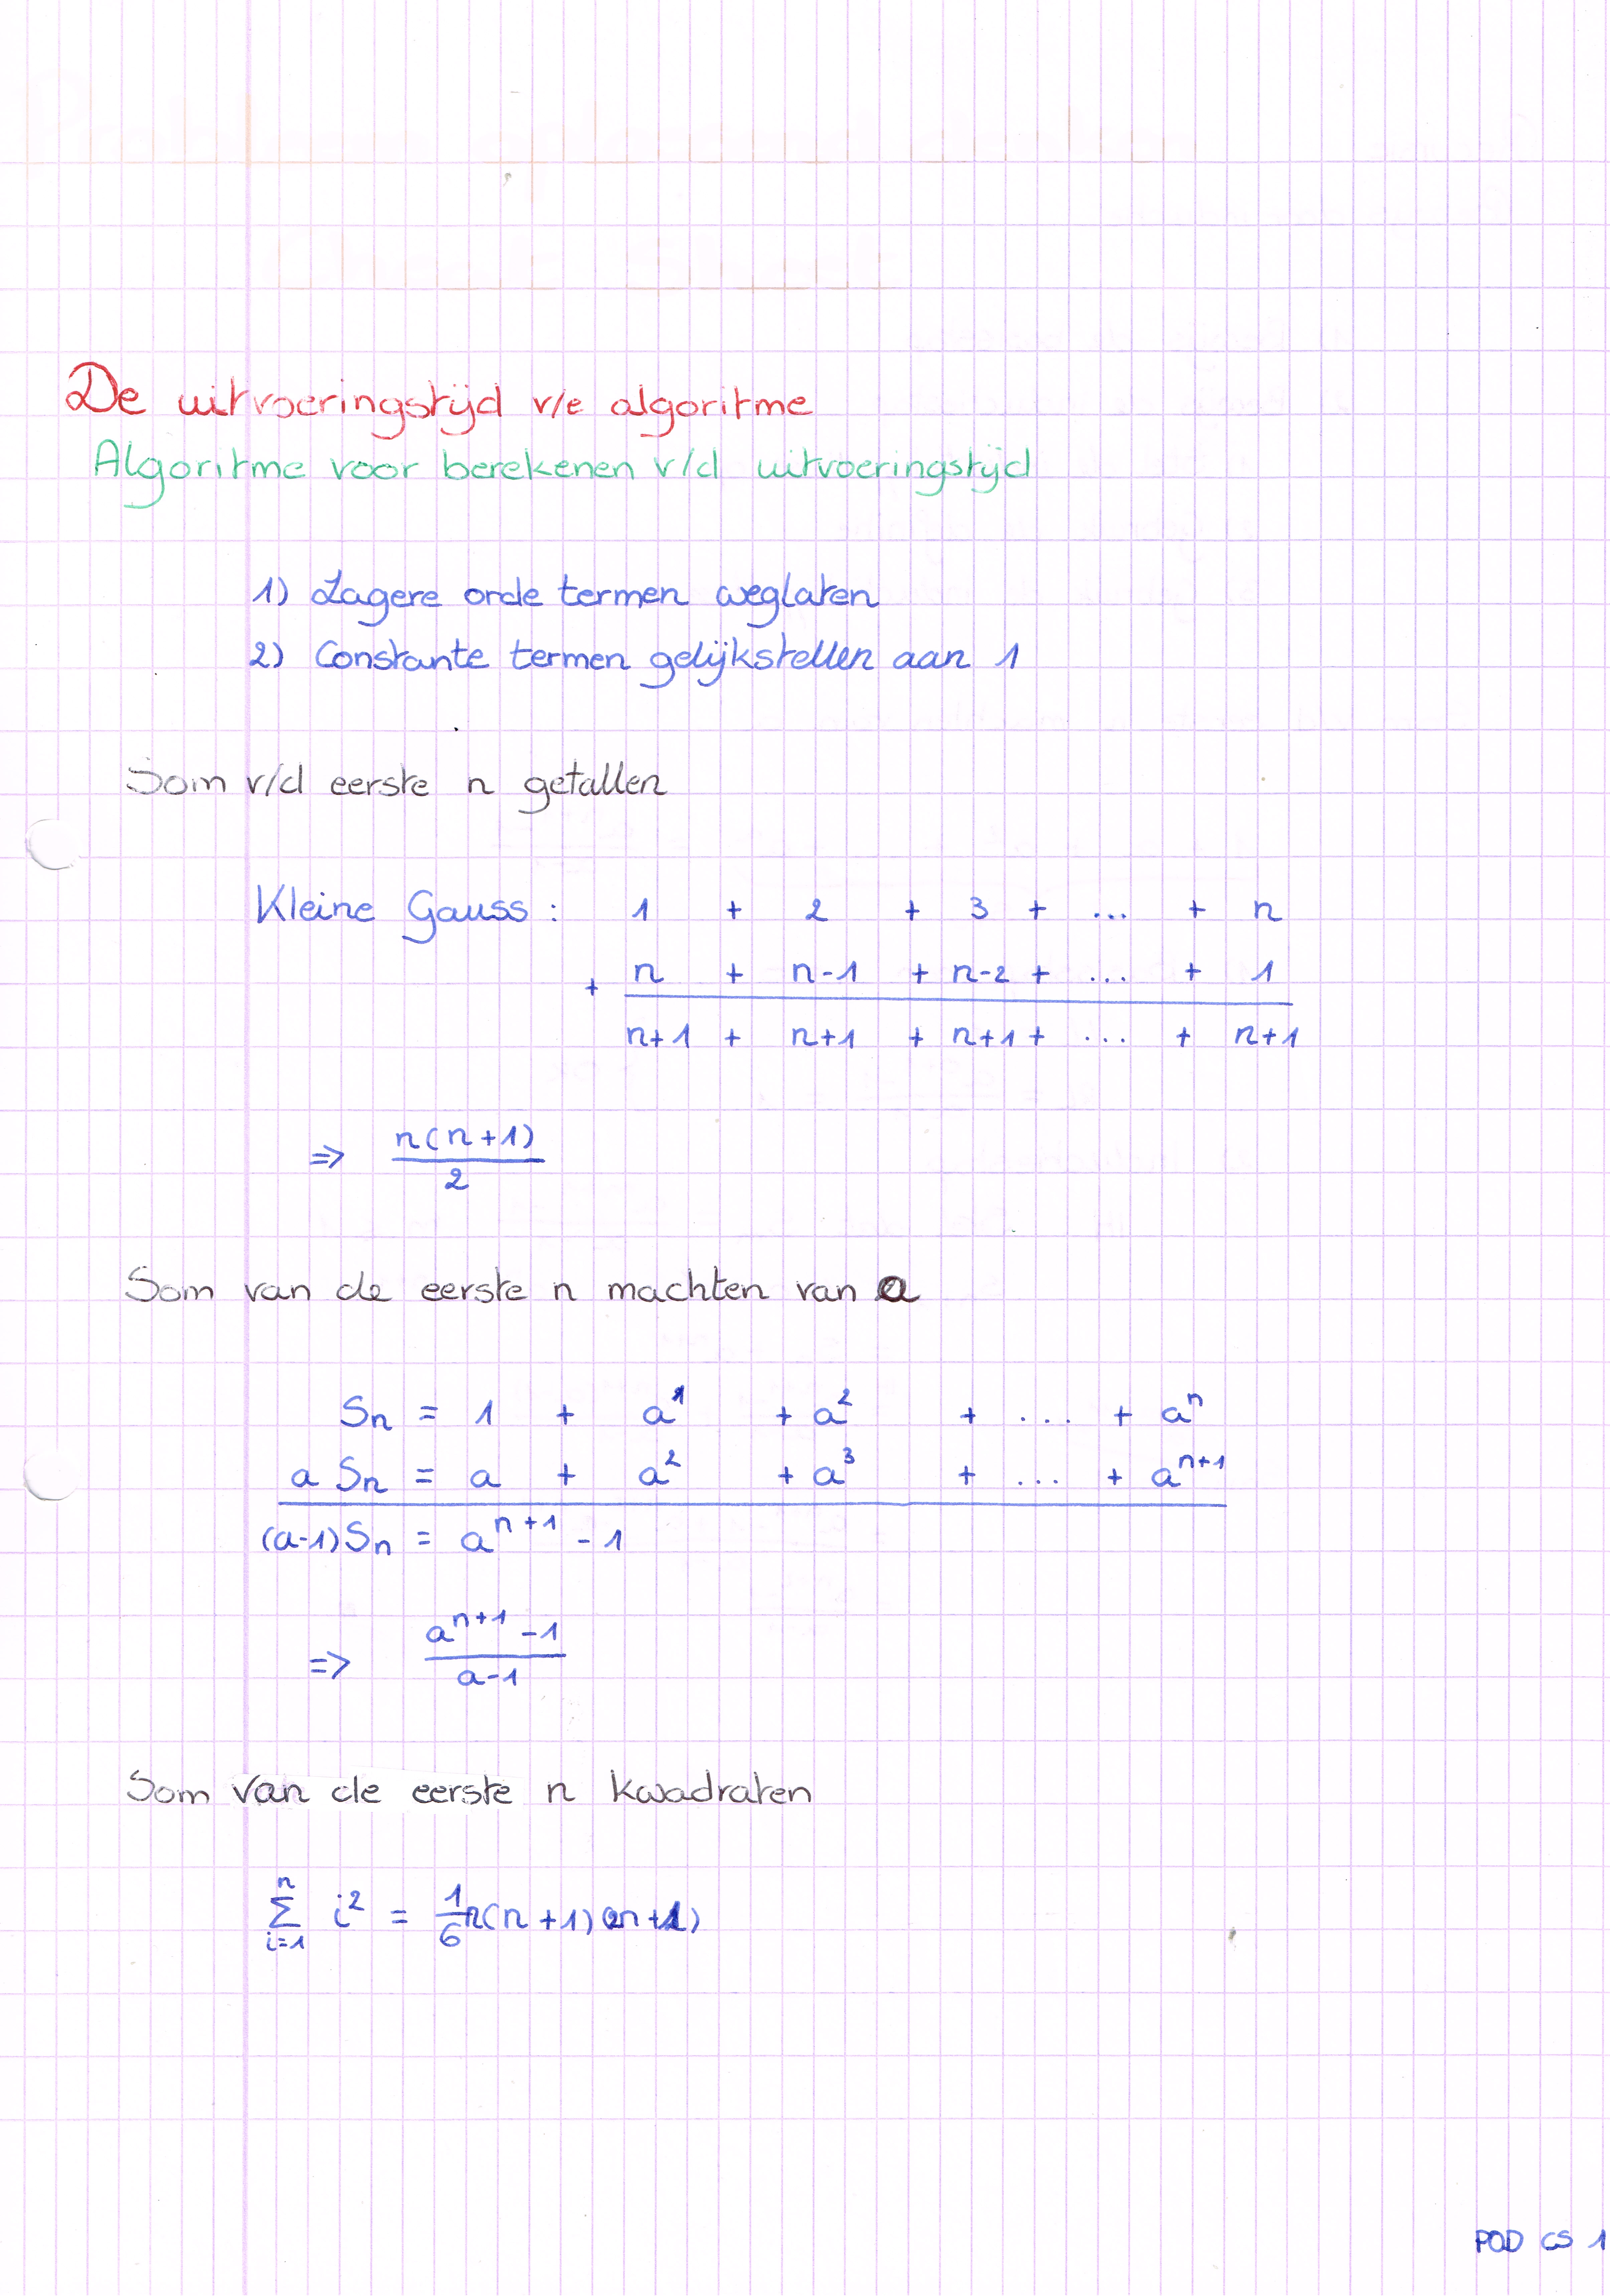 De uitvoeringstijd v/e algoritme
Algoritme voor berekenen v/d uitvoeringstijd
1) Lagere orde termen weglaten
2) Constante termen gelijkstellen aan 1
Som v/d eerste n getallen
Kleine Gauss : 1 + 2 + 3 + ... + n
+ n + n-1 + n-2 + ... + 1
n+1 + n+1 + n+1 + ... + n+1
⇒ n(n+1)/2
Som van de eerste n machten van a
Sₙ = 1 + a¹ + a² + ... + aⁿ
a Sₙ = a + a² + a³ + ... + aⁿ⁺¹
(a-1)Sₙ = aⁿ⁺¹ - 1
=> (aⁿ⁺¹ - 1)/(a-1)
Som van de eerste n kwadraten
∑_{i=1}^{n} i² = 1/6 n(n+1)(2n+1)
POD CS 1